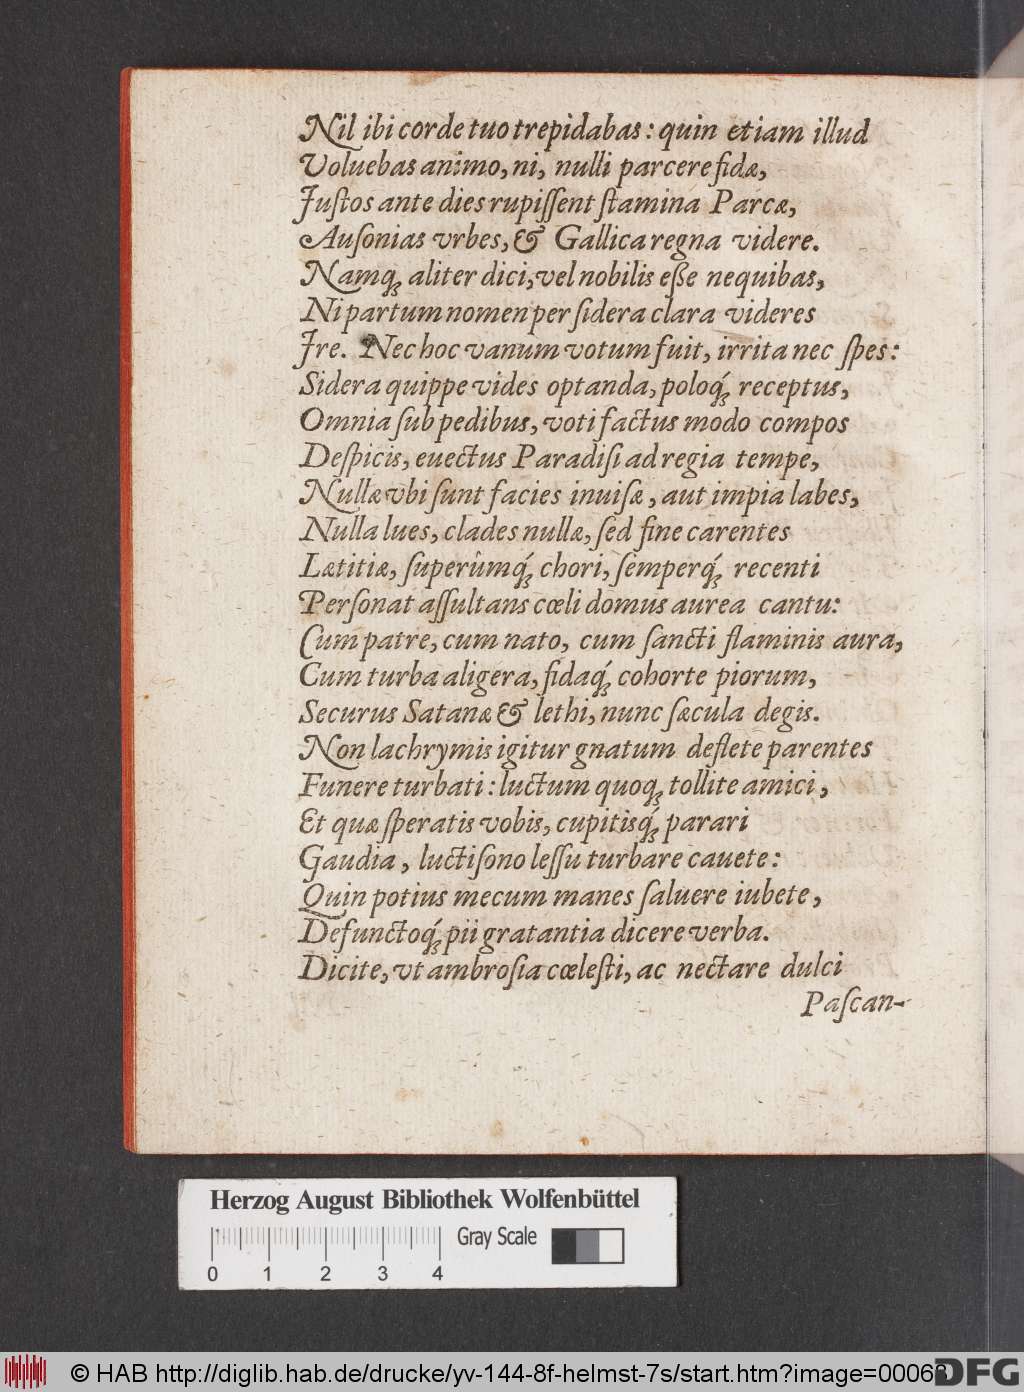 Nil ibi corde tuo trepidabas: quin etiam illud
Voluebas animo, ni, nulli parcere fidæ,
Iuſtos ante dies rupiſſent ſtamina Parcæ,
Auſonias vrbes, & Gallica regna videre.
Namq́ꝫ aliter dici, vel nobilis eſße nequibas,
Ni partum nomen per ſidera clara videres
Ire. Nec hoc vanum votum fuit, irrita nec ſpes:
Sidera quippe vides optanda, poloq́ꝫ receptus,
Omnia ſub pedibus, voti factus modo compos
Deſpicis, euectus Paradiſi ad regia tempe,
Nullæ vbi ſunt facies inuiſæ, aut impia labes,
Nulla lues, clades nullæ, ſed fine carentes
Lætitiæ, ſuperûmq́ꝫ chori, ſemperq́ꝫ recenti
Perſonat aſſultans cœli domus aurea cantu:
Cum patre, cum nato, cum ſancti flaminis aura,
Cum turba aligera, fidaq́ꝫ cohorte piorum,
Securus Satanæ & lethi, nunc ſæcula degis.
Non lachrymis igitur gnatum deflete parentes
Funere turbati: luctum quoqꝫ tollite amici,
Et quæ ſperatis vobis, cupitisq́ꝫ parari
Gaudia, luctiſono leſſu turbare cauete:
Quin potius mecum manes ſaluere iubete,
Defunctoq́ꝫ pii gratantia dicere verba.
Dicite, vt ambroſia cœleſti, ac nectare dulci
Paſcan-
Herzog August Bibliothek Wolfenbüttel
Gray Scale
0 1 2 3 4
© HAB http://diglib.hab.de/drucke/yv-144-8f-helmst-7s/start.htm?image=00063
DFG